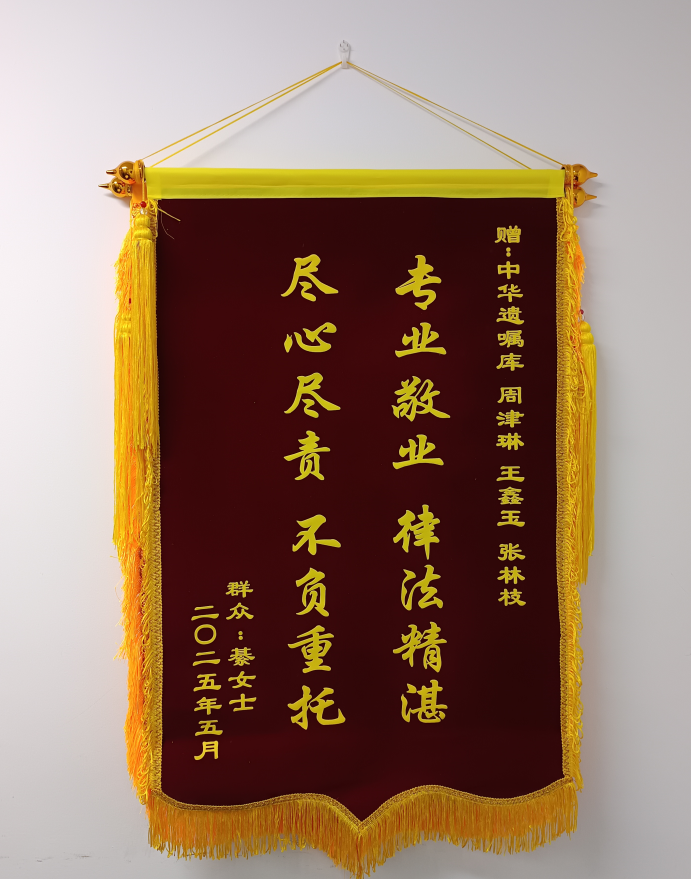 赠:中华遗嘱库 周津琳 王鑫玉 张林枝
专业敬业 律法精湛
尽心尽责 不负重托
群众:綦女士
二〇二五年五月